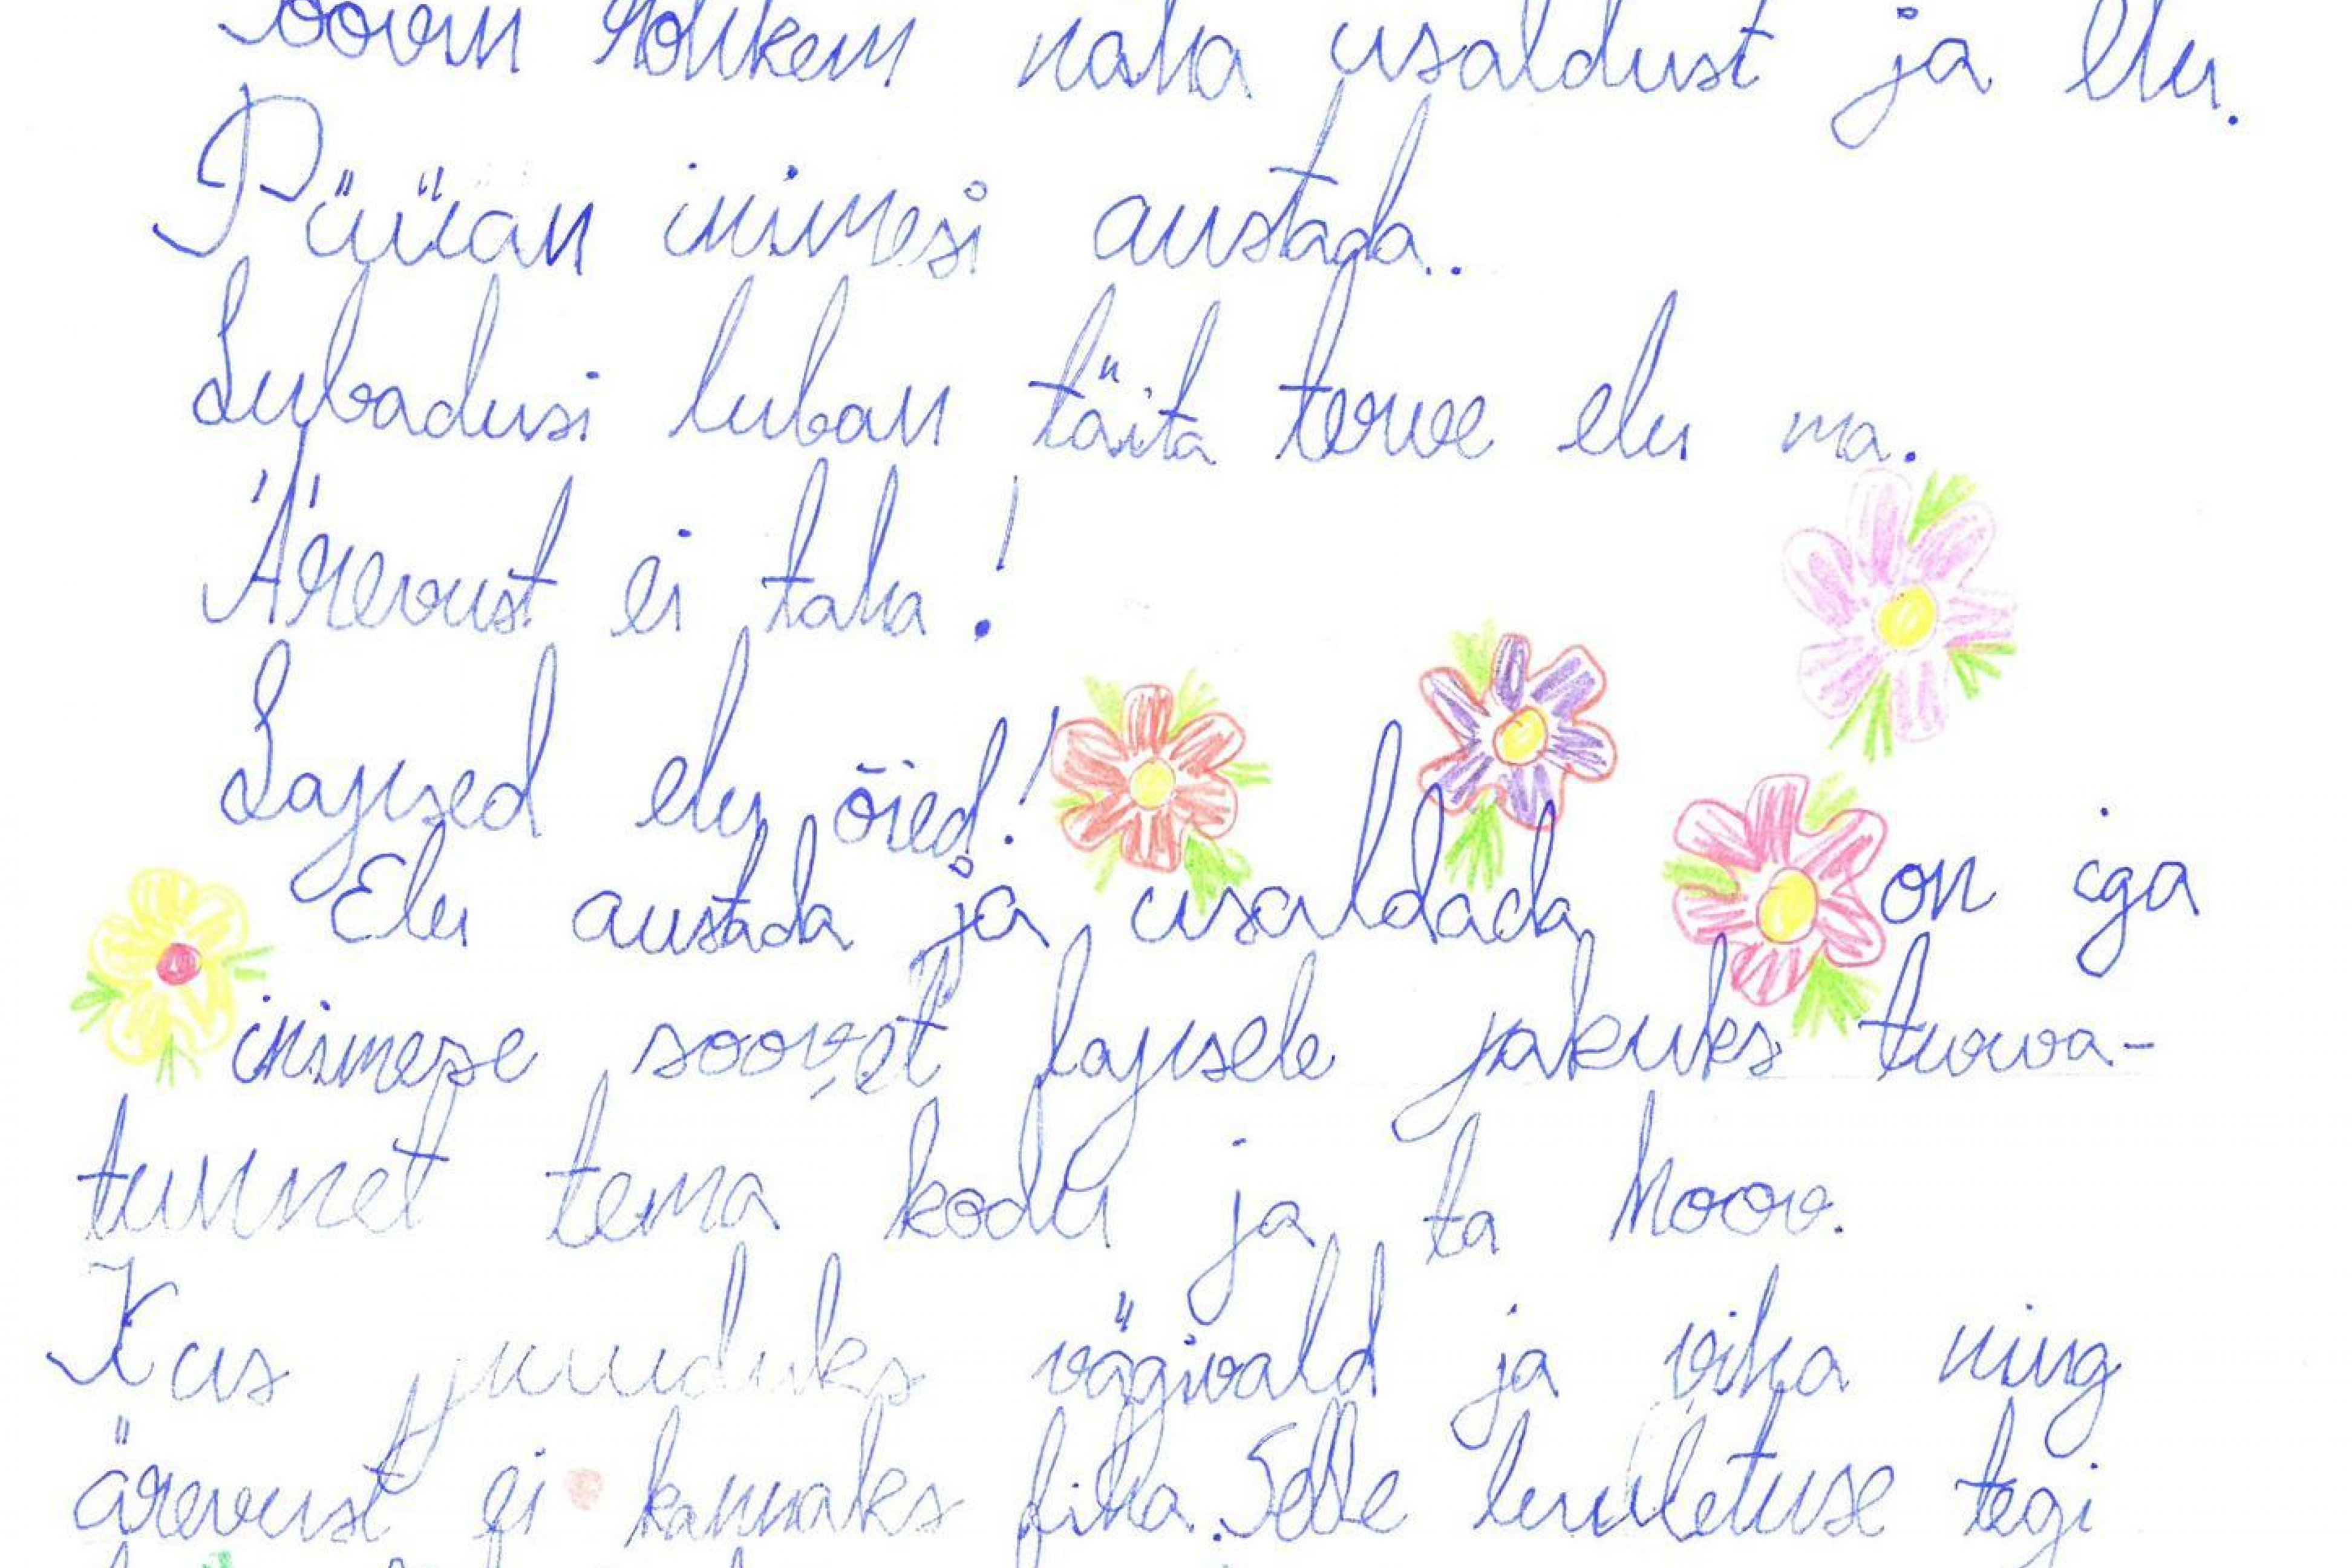 Soovin rohkem näha usaldust ja elu.
Püüan inimesi austada..
Lubadusi luban täita terve elu ma.
Ärevust ei taha!
Lapsed elu õied!
Elu austada ja usaldada on iga
inimese soov, et lapsele jakuks turva-
tunnet tema kodu ja ta hoov.
Kus puuduks vägivald ja viha ning
ärevust ei kannaks liha. Selle luuletuse tegi